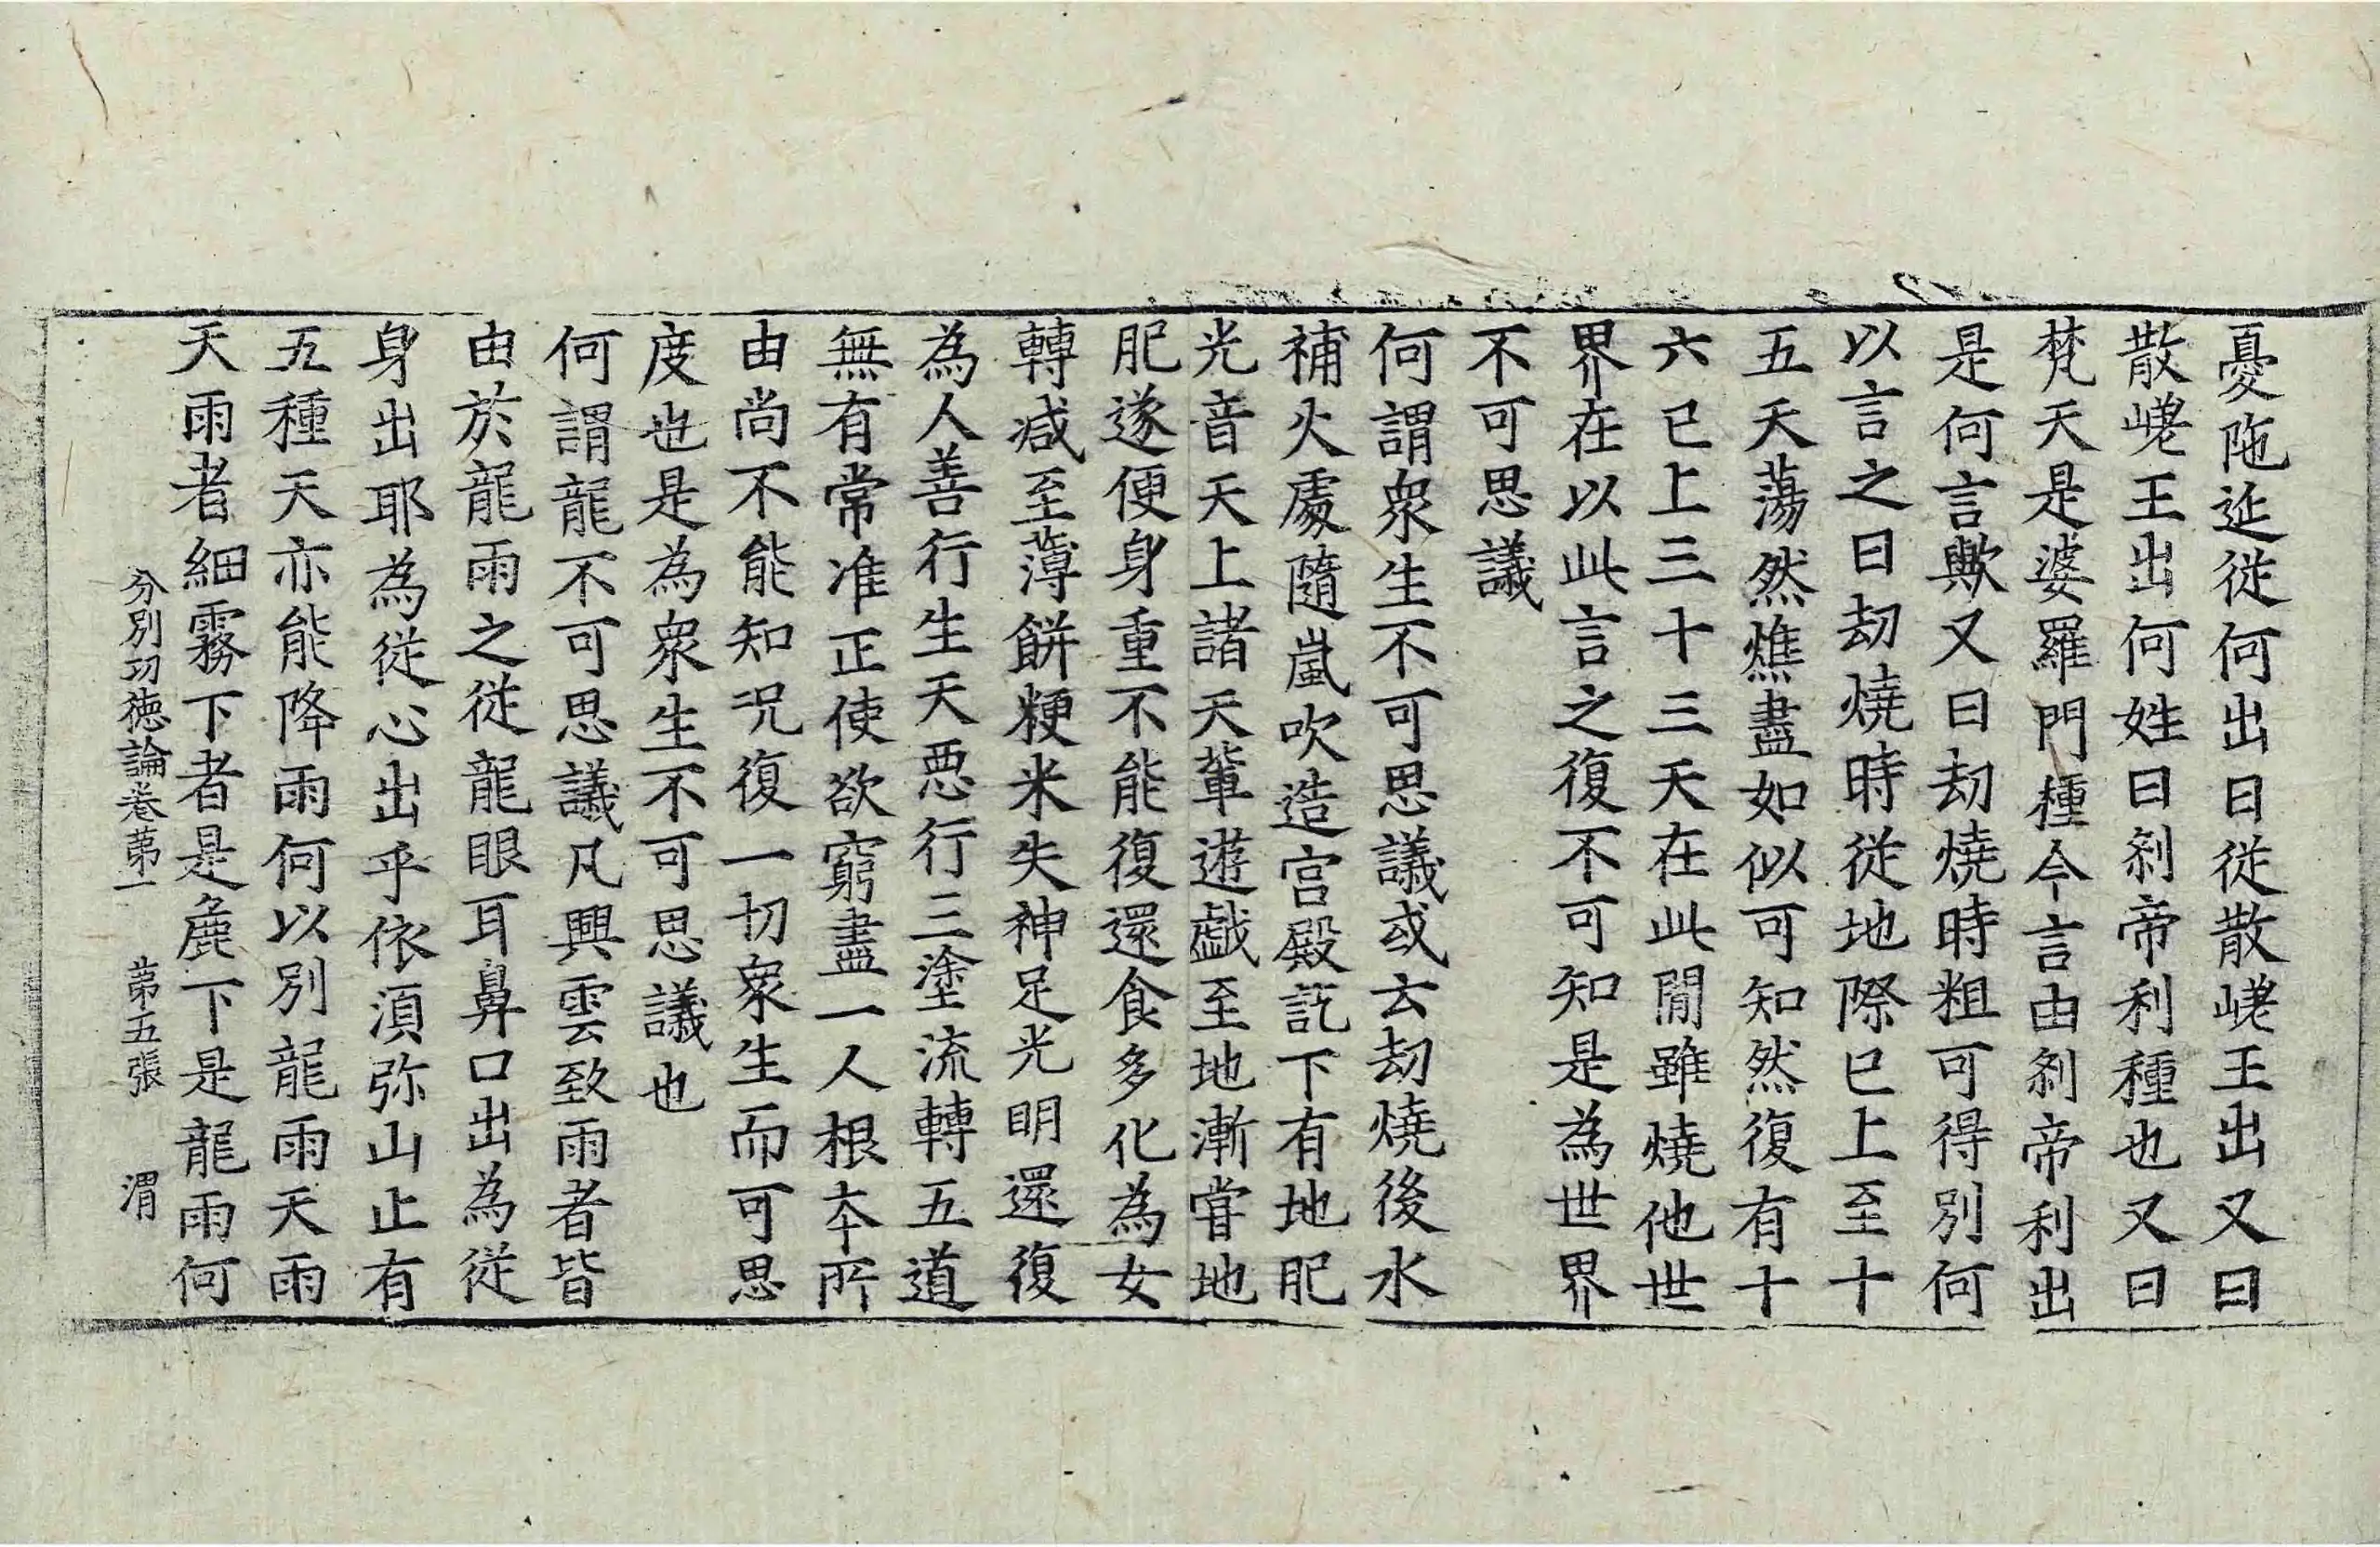 憂陁延從何出曰從散嵯王出又曰
散嵯王出何姓曰剎帝利種也又曰
梵天是婆羅門種今言由剎帝利出
是何言歟又曰劫燒時粗可得別何
以言之曰劫燒時從地際已上至十
五天蕩然燋盡如似可知然復有十
六已上三十三天在此閒雖燒他世
界在以此言之復不可知是為世界
不可思議
何謂衆生不可思議或云劫燒後水
補火處隨嵐吹造宮殿訖下有地肥
光音天上諸天輩遊戲至地漸甞地
肥遂便身重不能復還食多化為女
轉減至薄餅粳米失神足光明還復
為人善行生天悪行三塗流轉五道
無有常准正使欲窮盡一人根本所
由尚不能知況復一切衆生而可思
度也是為衆生不可思議也
何謂龍不可思議凡興雲致雨者皆
由於龍雨之從龍眼耳鼻口出為從
身出耶為從心出乎依須弥山止有
五種天亦能降雨何以別龍雨天雨
天雨者細霧下者是麁下是龍雨何
分別功德論卷苐一 苐五張 渭